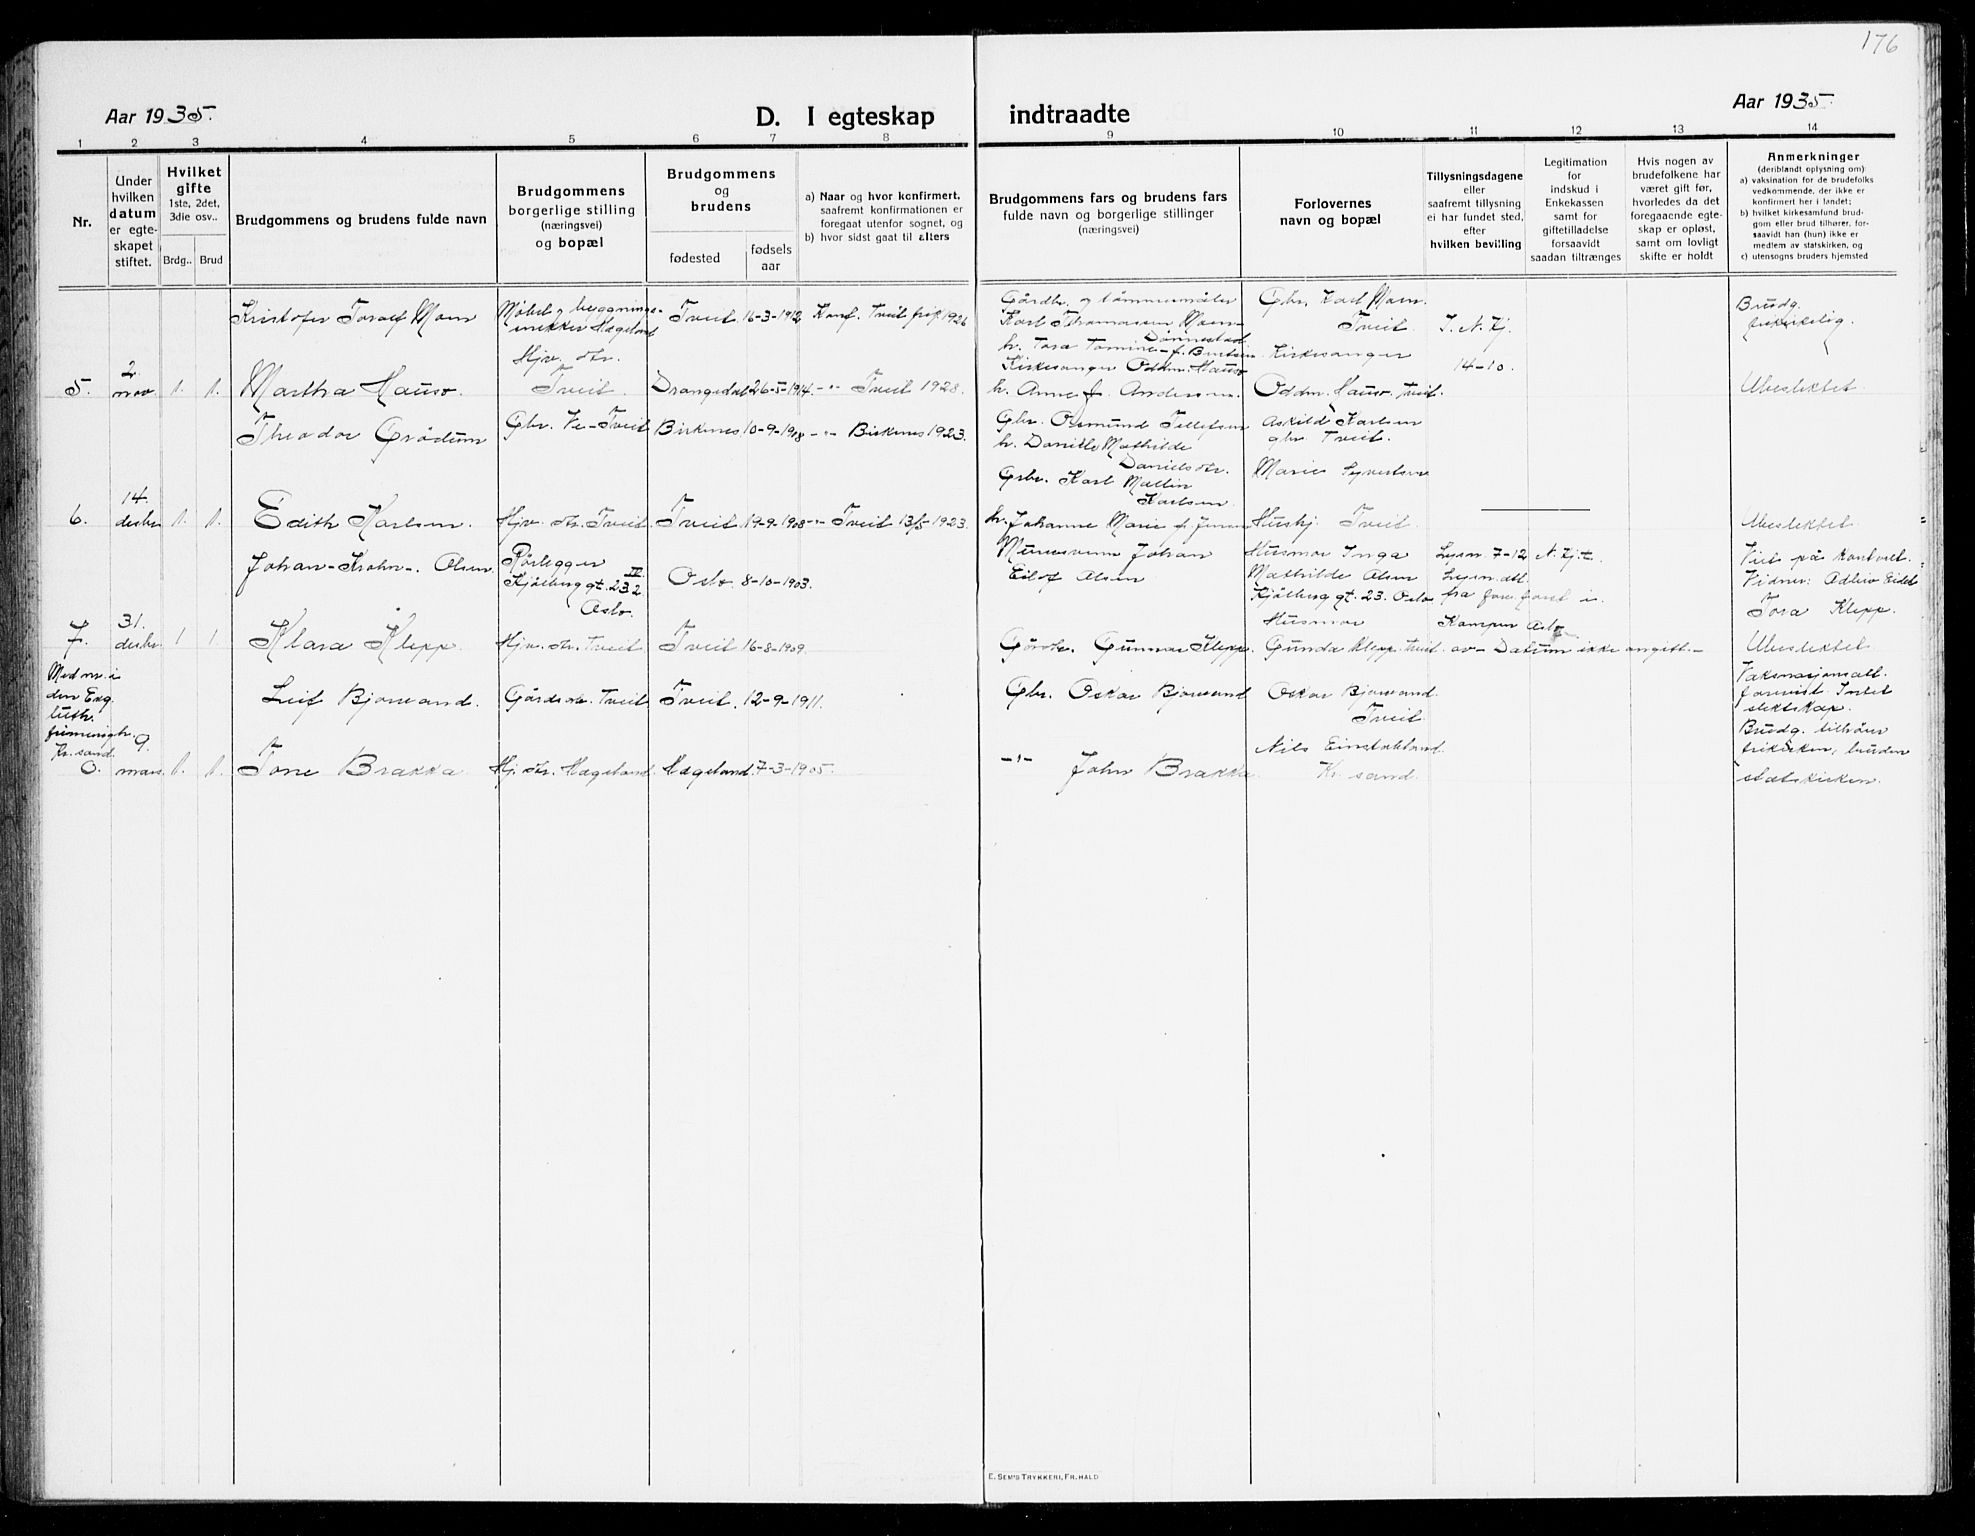 176
Aar 1935.
D. I egteskap
indtraadte
Aar 1935.
1 2 3 4 5 6 7 8 9 10 11 12 13 14
Nr.
Under
hvilken
datum
er egte-
skapet
stiftet.
Hvilket
gifte
1ste, 2det,
3die osv..
Brdg.. Brud
Brudgommens og brudens fulde navn
Brudgommens
borgerlige stilling
(næringsvei)
og bopæl
Brudgommens
og
brudens
fødested
fødsels
aar
a) Naar og hvor konfirmert,
saafremt konfirmationen er
foregaat utenfor sognet, og
b) hvor sidst gaat til alters
Brudgommens fars og brudens fars
fulde navn og borgerlige stillinger
(næringsvei)
Forlovernes
navn og bopæl
Tillysningsdagene
eller
saafremt tillysning
ei har fundet sted,
efter
hvilken bevilling
Legitimation
for
indskud i
Enkekassen
samt for
giftetilladelse
forsaavidt
saadan tiltrænges
Hvis nogen av
brudefolkene har
været gift før,
hvorledes da det
foregaaende egte-
skap er opløst,
samt om lovligt
skifte er holdt
Anmerkninger
(deriblandt oplysning om):
a) vaksination for de brudefolks
vedkommende, der ikke er
konfirmert her i landet;
b) hvilket kirkesamfund brud-
gom eller brud tilhører, for-
saavidt han (hun) ikke er
medlem av statskirken, og
c) utensogns bruders hjemsted
Kristofer Toralf Moen
Møbel og bygnings-
snekker Hægeland
Tveit 16-3-1912 Konf. Tveit frik 1926
Gårdbr. og tømmermåler
Karl Thomassen Moen-
Dønnestad
h. Tora Tomine f. Bentsen
Gbr. Karl Moen
Tveit.
I. N. Kj.
14-10.
Brudg.
frikirkelig.
5. 2. nov. 1. 1. Martha Hauso.
Hjv. dtr.
Tveit
Drangedal 26-5-1914. -"- Tveit 1928.
Kirkesanger Oddm. Hauso
h. Anne f. Andersen.
Kirkesanger
Oddm. Hauso Tveit.
Ubeslektet.
Theodor Grødum
Gbr. Ve-Tveit
Birkenes 10-9-1908 -"- Birkenes 1923.
Gbr. Osmund Tellefsen
h. Danille Mathilde
Danielsdtr.
Askild Karlsen
gbr. Tveit.
6. 14. desbr. 1. 1. Edith Karlsen.
Hjv. dtr. Tveit
Tveit 19-9-1908 -"- Tveit 13/5-1923.
Gbr. Karl Mallin
Karlsen
h. Johanne Marie f. Jensen
Marie Syvertsen
Hushj. Tveit.
Ubeslektet
Johan-Krohn-. Olsen
Rørlegger
Kjølberggt. 23 2 IV
Oslo.
Oslo 8-10-1903.
Murersvenn Johan
Eilof Olsen
Husmor Inga
Mathilde Olsen
Kjølberggt. 23. Oslo
Lysn 7-12 N. Kj. t.
Lysn. att.
fra forr. forst i
Kampen Oslo
Viet på kontoret.
Vidner: Adlew Eidet
Tora Klepp.
7. 31. desbr. 1 1 Klara Klepp.
Hjv. dtr. Tveit
Tveit 16-8-1909.
Gårdbr. Gunnar Klepp.
Husmor
Gunda Klepp Tveit.
av - Datum ikke angitt.-
Ubeslektet
Med nr. i
den Evg.
luth.
frimenigh.
Kr. sand.
0.
Leif Bjorvand.
Gårdsdr. Tveit
Tveit. 12-9-1911.
Gbr. Oskar Bjorvand
Oskar Bjorvand
Tveit.
Vaksinasjonsatt.
forevist. Intet
slektskap.
9. mars. 1. 1. Tone Brakka
Hj. dtr. Hægeland.
Hægeland. 7-3-1905.
-"- John Brakka.
Nils Einstabland.
Kr. sand.
Brudg. tilhører
frikirken, bruden
statskirken.
E. SEM'S TRYKKERI, FR.HALD